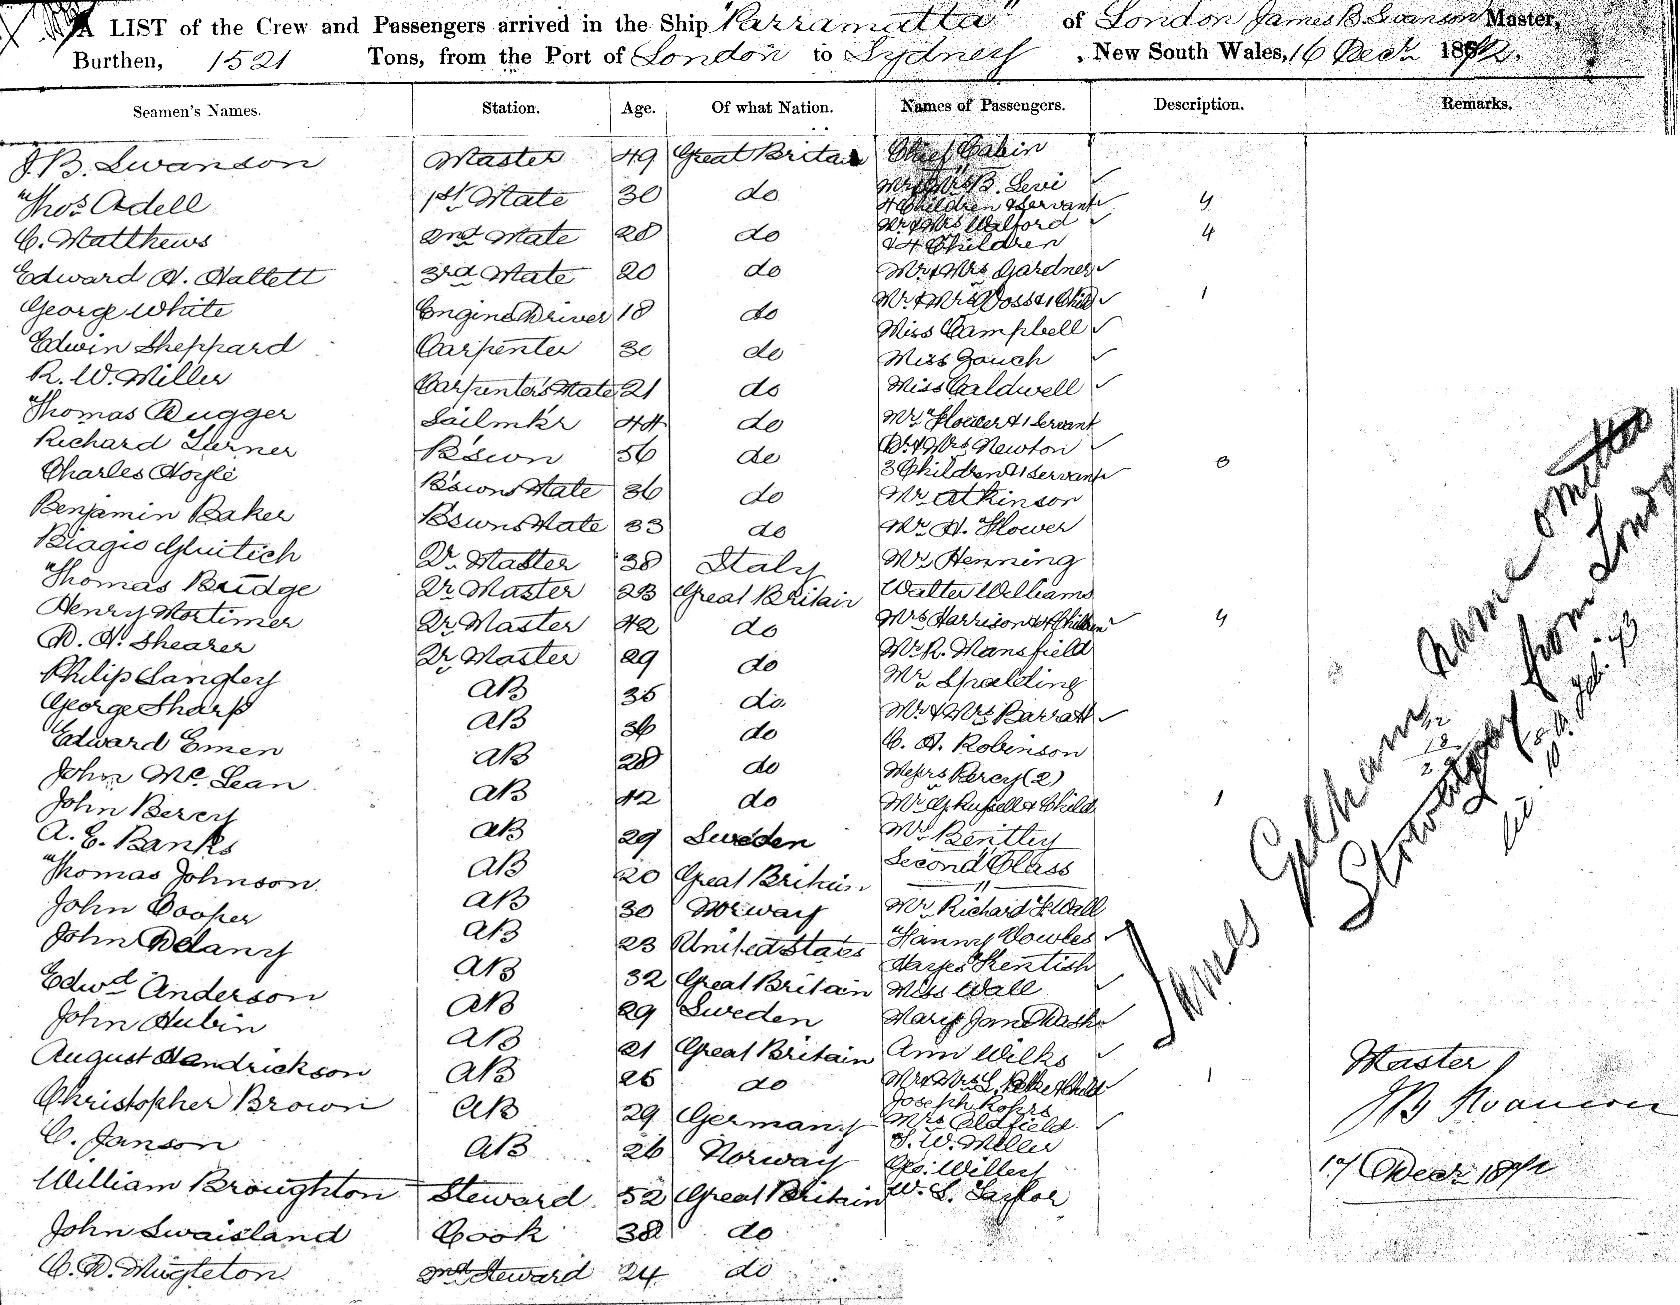 A LIST of the Crew and Passengers arrived in the Ship "Parramatta" of London James B Swanson Master,
Burthen, 1521 Tons, from the Port of London to Sydney, New South Wales, 16 Decr 1872.
Seamen's Names. Station. Age. Of what Nation. Names of Passengers. Description. Remarks.
J. B. Swanson Master 49 Great Britain Chief Cabin
Thos Adell 1st Mate 30 do Mr & Mrs B. Levi
4 Children & Servant 4
C. Matthews 2nd Mate 28 do Mr & Mrs Walford
& 4 Children 4
Edward H. Hallett 3rd Mate 20 do Mr & Mrs Gardner
George White Engine Driver 18 do Mr & Mrs Voss & 1 Child 1
Edwin Sheppard Carpenter 30 do Miss Campbell
Miss Zouch
R. W. Miller Carpenter's Mate 21 do Miss Caldwell
Thomas Dugger Sailmkr 44 do Mr Flower & 1 Servant
Richard Turner B'swn 56 do Dr & Mrs Newton
3 Children & 1 Servant 3
Charles Hoyle B'swns Mate 36 do Mr Atkinson
Benjamin Baker B'swns Mate 33 do Mr H. Flower
Biagio Qr Master 38 Italy Mr Henning
Thomas Bridge Qr Master 23 Great Britain Walter Williams
Henry Mortimer Qr Master 42 do Mrs Harrison & 4 Children 4
D. H. Shearer Qr Master 29 do Mr R. Mansfield
Philip Langley AB 35 do Mr Spalding
George Sharp AB 36 do Mr & Mrs Barratt
Edward Emen AB 28 do C. H. Robinson
John McLean AB 42 do Messrs Percy (2)
Mr G. Russell & Child 1
John Bercy AB 29 Sweden Mr Bentley
A. E. Banks AB 20 Great Britain Second Class
Thomas Johnson AB 30 Norway Mr Richard Wall
John Cooper AB 23 United States Fanny Vowles
Kentish
John Delany AB 32 Great Britain Miss Wall
Edwd Anderson AB 29 Sweden Mary Jane
John Hubin AB 21 Great Britain Ann Wilks
August Hendrickson AB 25 do Mr & Mrs L. & Child 1
Joseph
Christopher Brown AB 29 Germany Mrs Oldfield
C. Janson AB 26 Norway W. Miller
Geo. Willey
William Broughton Steward 52 Great Britain W. S. Taylor
John Swaisland Cook 38 do
C. D. Mugleton 2nd Steward 24 do
James Gelham name omitted
Stowaway from London
10 Feb. 73
Master
JB Swanson
17 Decr 1872